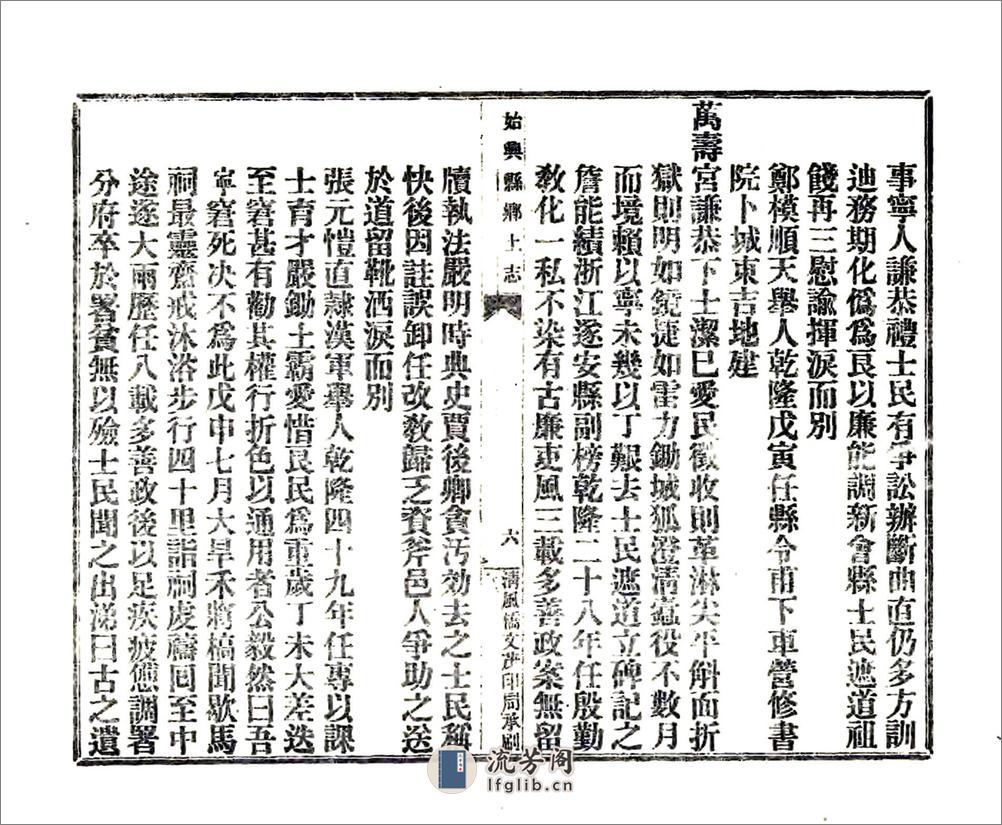 事寧人謙恭禮士民有爭訟辦斷曲直仍多方訓
迪務期化僞爲良以廉能調新會縣士民遮道祖
餞再三慰諭揮淚而別
鄭模順天舉人乾隆戊寅任縣令甫下車營修書
院卜城東吉地建
萬壽宮謙恭下士潔己愛民徵收則革淋尖平斛面折
獄則明如鏡捷如雷力鋤城狐澄淸蠧役不數月
而境賴以寧未幾以丁艱去士民遮道立碑記之
詹能績浙江遂安縣副榜乾隆二十八年任殷勤
敎化一私不染有古廉吏風三載多善政案無留
始興縣鄉土志
六
淸風橋文茂印局承刷
牘執法嚴明時典史賈後卿貪汚効去之士民稱
快後因註誤卸任改敎歸乏資斧邑人爭助之送
於道留靴洒淚而別
張元愷直隷漢軍舉人乾隆四十九年任專以課
士育才嚴鋤土霸愛惜良民爲重歲丁未大差迭
至窘甚有勸其權行折色以通用者公毅然曰吾
寧窘死决不爲此戊申七月大旱禾將槁聞歇馬
祠最靈齋戒沐浴步行四十里詣祠虔禱囘至中
途遂大雨歷任八載多善政後以足疾疲憊調署
分府卒於署貧無以殮士民聞之出涕曰古之遺
流芳阁
lfglib.cn